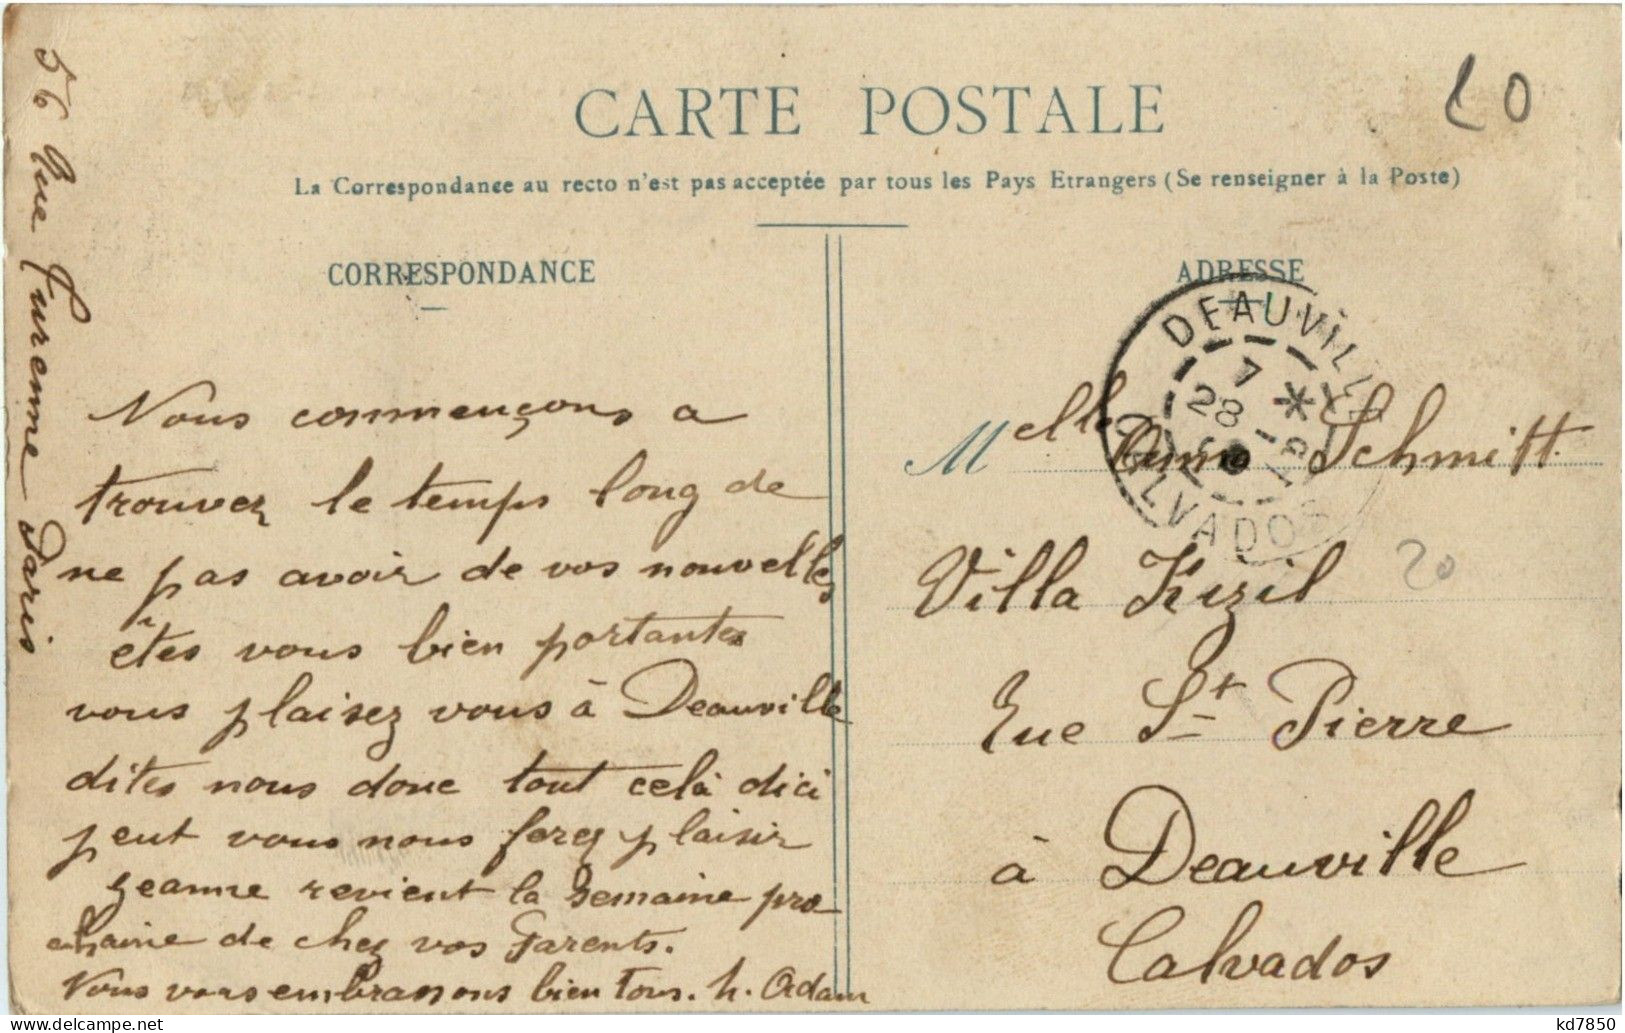 CARTE POSTALE
20
La Correspondance au recto n'est pas acceptée par tous les Pays Etrangers (Se renseigner à la Poste)
CORRESPONDANCE
ADRESSE
56 Rue Turenne Paris
Nous commençons a
trouver le temps long de
ne pas avoir de vos nouvelles
êtes vous bien portantes
vous plaisez vous à Deauville
dites nous donc tout celà dici
peut vous nous ferez plaisir
Jeanne revient la semaine pro-
chaine de chez vos Parents.
Nous vous embrassons bien tous. h. Adam
DEAUVILLE
7 *
28
CALVADOS
Melle Anna Schmitt
Villa Kizil
20
Rue St Pierre
à Deauville
Calvados
kd7850